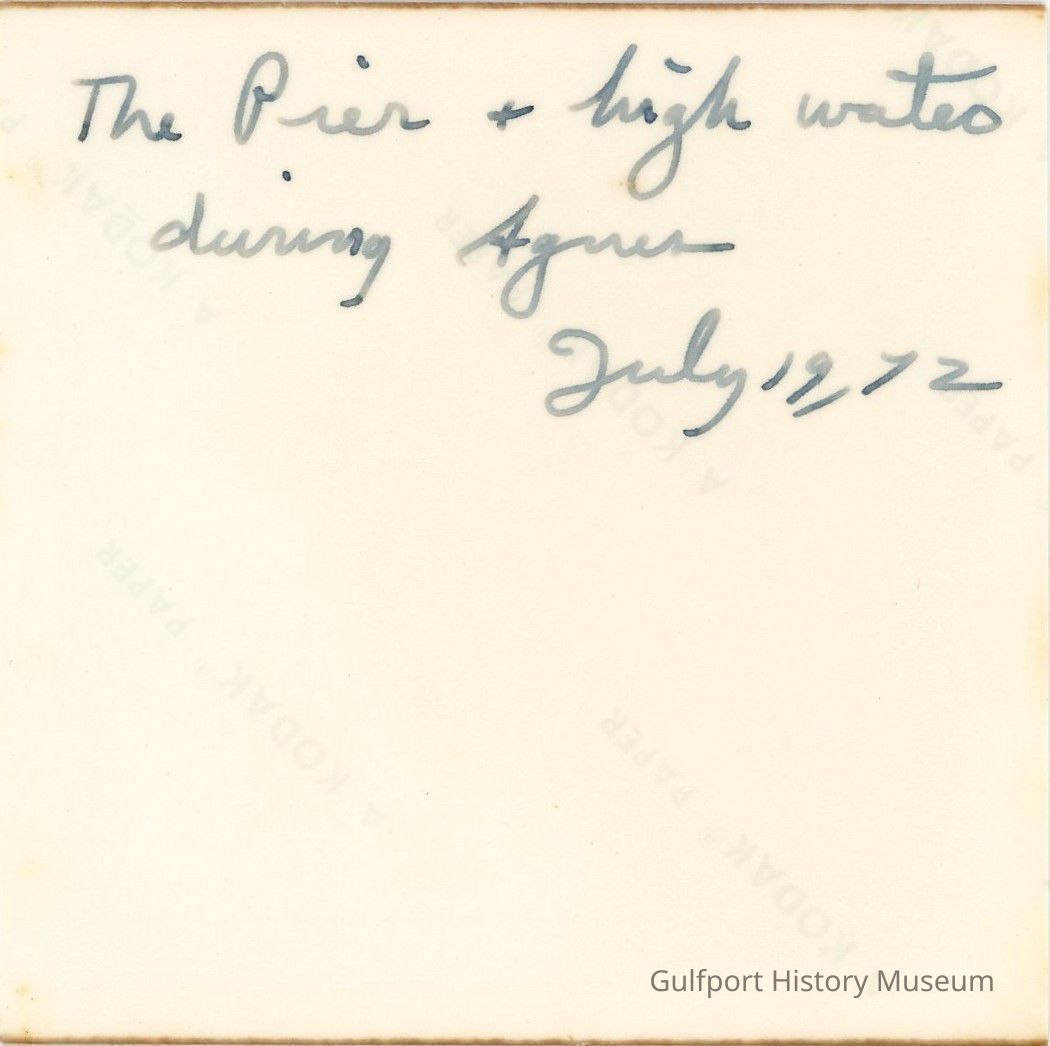 The Pier + high water
during Agnes
July 19, 72
A KODAK PAPER
A KODAK PAPER
A KODAK PAPER
KODAK PAPER
Gulfport History Museum